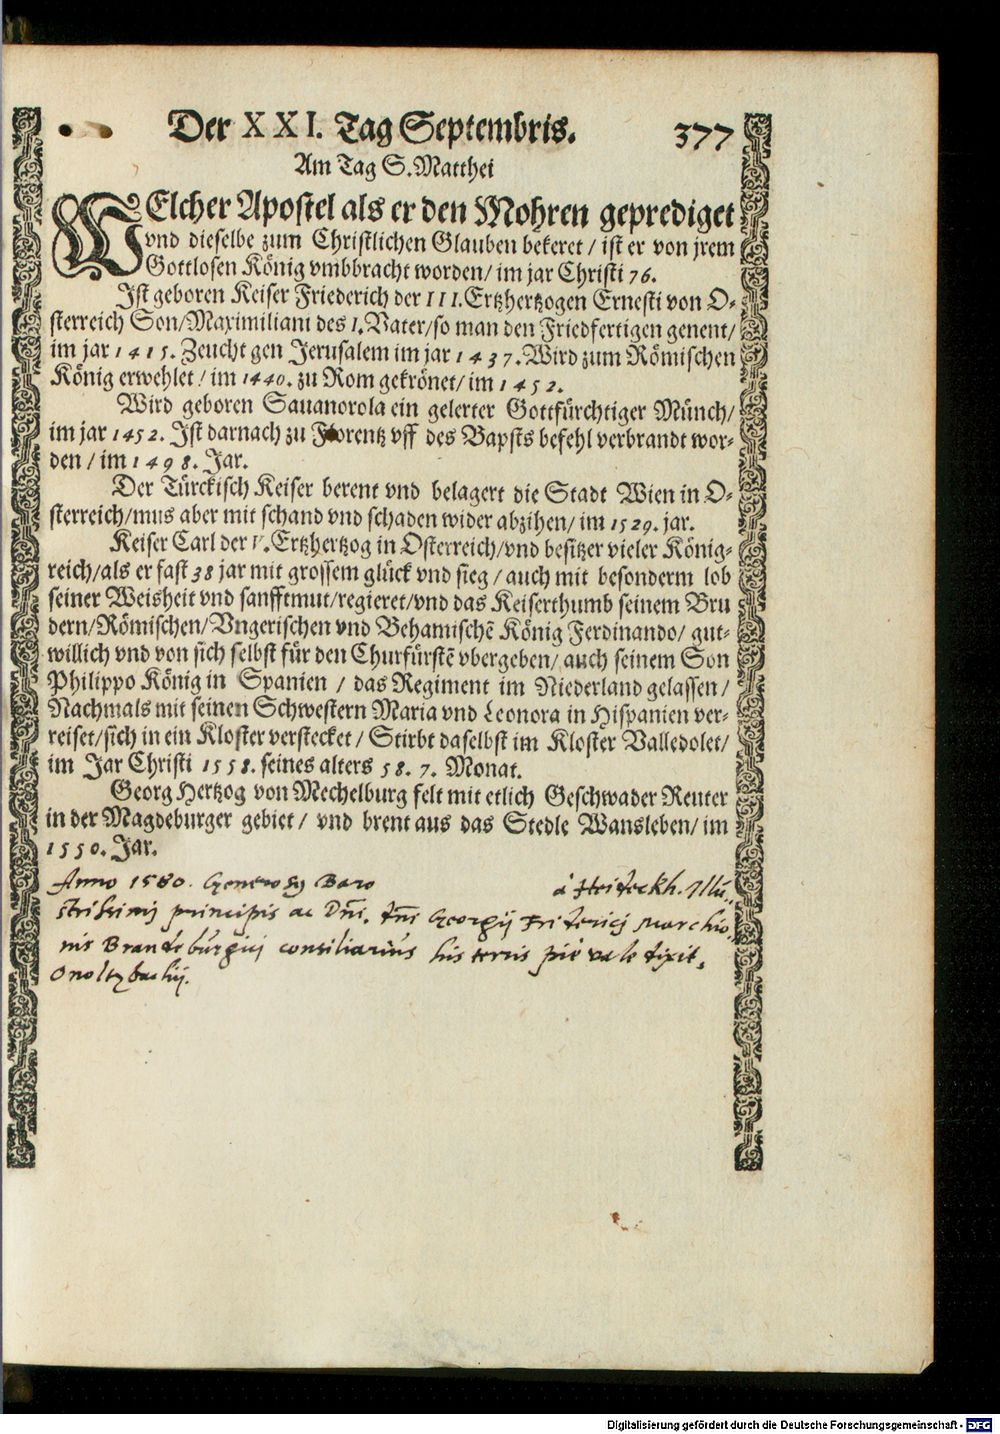 Der XXI. Tag Septembris. 377
Am Tag S. Matthei
WElcher Apostel als er den Mohren geprediget
vnd dieselbe zum Christlichen Glauben bekeret / ist er von jrem
Gottlosen König vmbbracht worden / im jar Christi 76.
Ist geboren Keiser Friederich der III. Ertzhertzogen Ernesti von O-
sterreich Son / Maximiliani des I. Vater / so man den Friedfertigen genent /
im jar 1415. Zeucht gen Jerusalem im jar 1437. Wird zum Römischen
König erwehlet / im 1440. zu Rom gekrönet / im 1452.
Wird geboren Sauanorola ein gelerter Gottfürchtiger Münch /
im jar 1452. Ist darnach zu Florentz vff des Bapsts befehl verbrandt wor-
den / im 1498. Jar.
Der Türckisch Keiser berent vnd belagert die Stadt Wien in O-
sterreich / mus aber mit schand vnd schaden wider abzihen / im 1529. jar.
Keiser Carl der V. Ertzhertzog in Osterreich / vnd besitzer vieler König-
reich / als er fast 38 jar mit grossem glück vnd sieg / auch mit besonderm lob
seiner Weisheit vnd sanfftmut / regieret / vnd das Keiserthumb seinem Bru
dern / Römischen / Vngerischen vnd Behamischẽ König Ferdinando / gut-
willich vnd von sich selbst für den Churfürstẽ vbergeben / auch seinem Son
Philippo König in Spanien / das Regiment im Niederland gelassen /
Nachmals mit seinen Schwestern Maria vnd Leonora in Hispanien ver-
reiset / sich in ein Kloster verstecket / Stirbt daselbst im Kloster Valledolet /
im Jar Christi 1558. seines alters 58. 7. Monat.
Georg Hertzog von Mechelburg felt mit etlich Geschwader Reuter
in der Magdeburger gebiet / vnd brent aus das Stedle Wansleben / im
1550. Jar.
Anno 1580. Generosus Baro à Heideckh. Illu-
strissimi principis ac Dñi. Dñi Georgij Friderici Marchio-
nis Brandeburgici consiliarius his terris piè vale dixit,
Onoltzbachij.
Digitalisierung gefördert durch die Deutsche Forschungsgemeinschaft - DFG